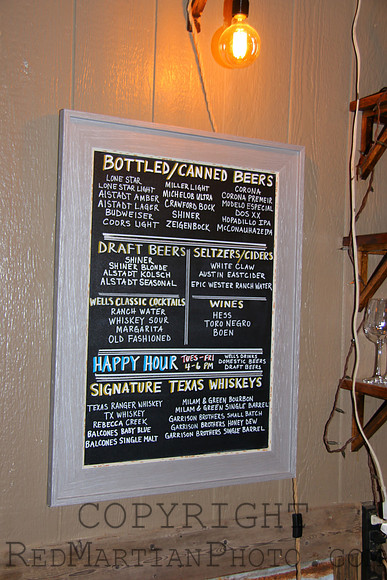 BOTTLED/CANNED BEERS
LONE STAR
LONE STAR LIGHT
AlSTADT AMBER
AlSTADT LAGER
BUDWEISER
COORS LIGHT
MILLER LIGHT
MICHELOB ULTRA
CRAWFORD BOCK
SHINER
ZEIGENBOCK
CORONA
CORONA PREMEIR
MODELO ESPECIAL
DOS XX
HOPADILLO IPA
MCCONAUHAZEIPA
DRAFT BEERS
SHINER
SHINER BLONDE
ALSTADT KOLSCH
ALSTADT SEASONAL
SELTZERS/CIDERS
WHITE CLAW
AUSTIN EASTCIDER
EPIC WESTER RANCH WATER
WELLS CLASSIC COCKTAILS
RANCH WATER
WHISKEY SOUR
MARGARITA
OLD FASHIONED
WINES
HESS
TORO NEGRO
BOEN
HAPPY HOUR
TUES-FRI
4-6 PM
WELLS DRINKS
DOMESTIC BEERS
DRAFT BEERS
SIGNATURE TEXAS WHISKEYS
TEXAS RANGER WHISKEY
TX WHISKEY
REBECCA CREEK
BALCONES BABY BLUE
BALCONES SINGLE MALT
MILAM & GREEN BOURBON
MILAM & GREEN SINGLE BARREL
GARRISON BROTHERS SMALL BATCH
GARRISON BROTHERS HONEY DEW
GARRISON BROTHERS SINGLE BARREL
COPYRIGHT
REDMARTIANPHOTO.COM